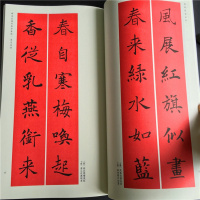 風展紅旗似畫
春來綠水如藍
春自寒梅喚起
香從乳燕銜来